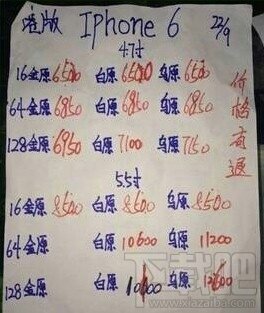 港版 Iphone 6 22/9
4.7寸
16金原 6500 白原 6500 乌原 6500
64金原 6850 白原 6850 乌原 6850
128金原 6950 白原 7100 乌原 7150
5.5寸
16金原 8500 白原 8500 乌原 8500
64金原 白原 10600 乌原 11200
128金原 白原 乌原 12600
价格商通
下载吧
www.xiazaiba.com